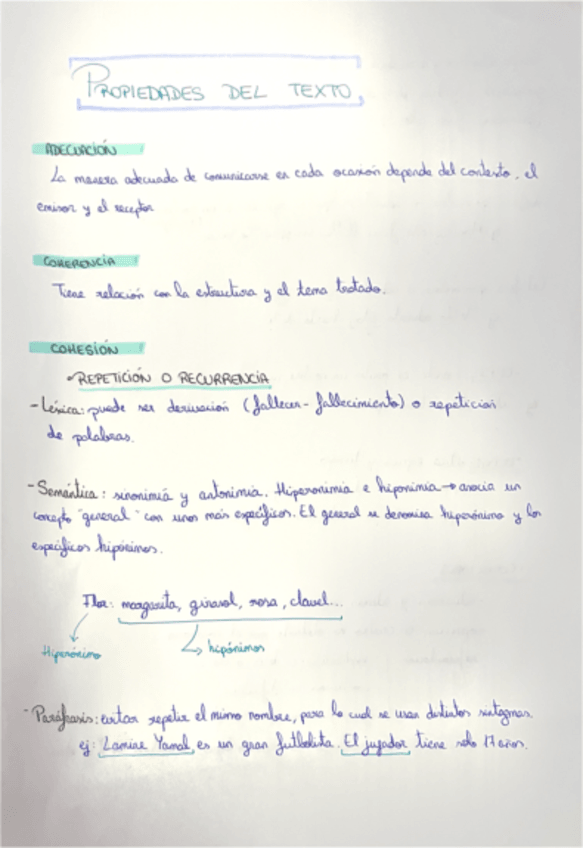 PROPIEDADES DEL TEXTO
ADECUACIÓN
La manera adecuada de comunicarse en cada ocasión depende del contexto, el
emisor y el receptor
COHERENCIA
Tiene relación con la estructura y el tema tratado.
COHESIÓN
•REPETICIÓN O RECURRENCIA
-Léxica: puede ser derivación (fallecer-fallecimiento) o repetición
de palabras.
-Semántica: sinonimia y antonimia. Hiperonimia e hiponimia → asocia un
concepto "general" con unos más específicos. El general se denomina hiperónimo y los
específicos hipónimos.
Flor: margarita, girasol, rosa, clavel...
Hiperónimo
hipónimos
-Paráfrasis: evitar repetir el mismo nombre, para lo cual se usan distintos sintagmas.
ej: Lamine Yamal es un gran futbolista. El jugador tiene solo 17 años.